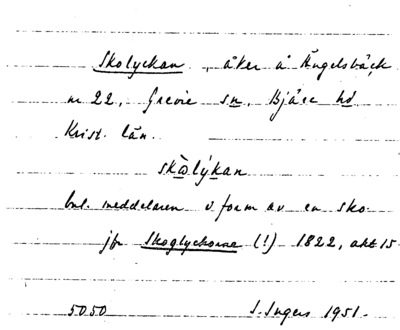 Skolyckan , åker å Ängelsbäck
nr 22, Grevie sn, Bjäre hd
Krist. län.
skωlýkan
enl. meddelaren o form av en sko.
jfr Skoglyckorne (!) 1822, akt 15
5050 I. Ingers 1951.